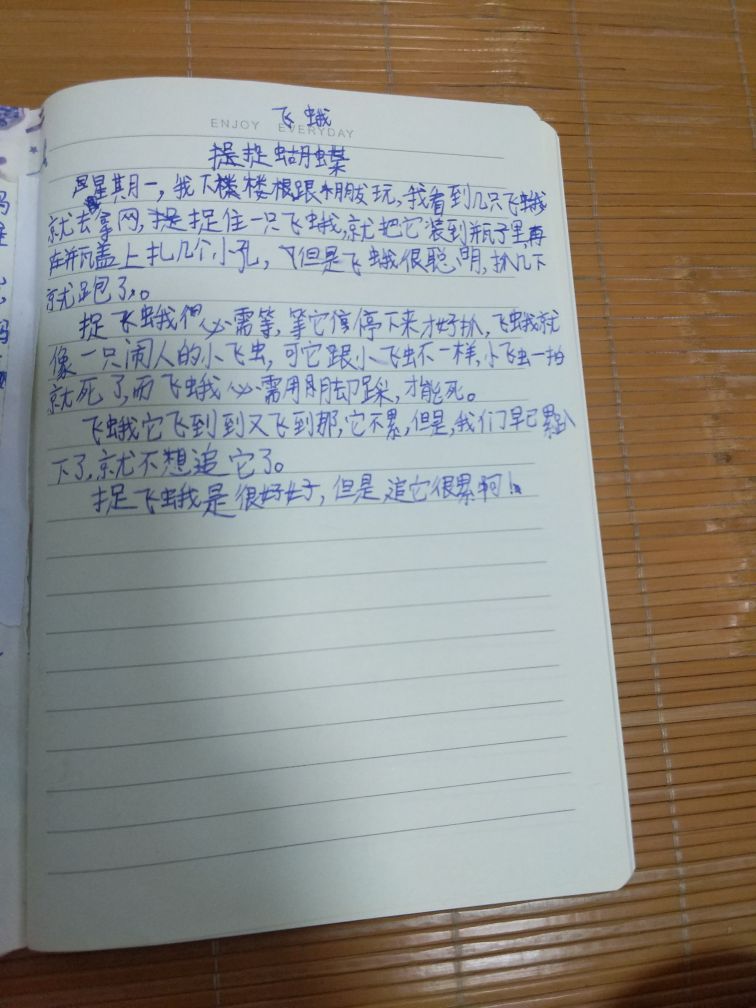 飞蛾
ENJOY EVERYDAY
捉蝴蝶
星期一,我下楼跟朋友玩,我看到几只飞蛾
就去拿网,捉住一只飞蛾,就把它装到瓶子里,再
在并瓦盖上扎几个小孔,但是飞蛾很聪明,扒几下
就跑了。
捉飞蛾我們必需等,等它停停下来才好扒,飞蛾就
像一只闹人的小飞虫,可它跟小飞虫不一样,小飞虫一拍
就死了,而飞蛾必需用脚踩,才能死。
飞蛾它飞到到又飞到那,它不累,但是,我们早已累趴
下了,就不想追它了。
捉飞蛾是很好好,但是追它很累啊!